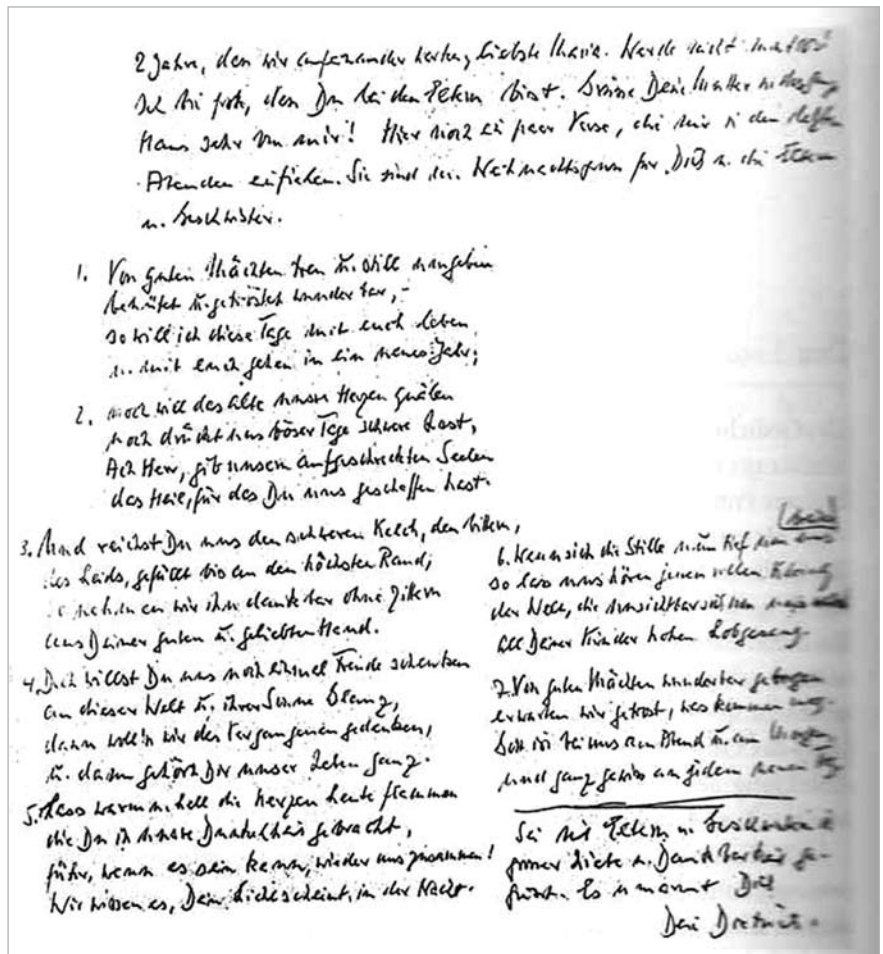 2 Jahre, dass wir aufeinander warten, liebste Maria. Werde nicht mutlos!
Ich bin froh, dass Du bei den Eltern bist. Grüsse Deine Mutter u. das ganze
Haus sehr von mir! Hier noch ein paar Verse, die mir in den letzten
Abenden einfielen. Sie sind der Weihnachtsgruss für Dich u. die Eltern
u. Geschwister.
1. Von guten Mächten treu u. still umgeben
behütet u. getröstet wunderbar, –
so will ich diese Tage mit euch leben
u. mit euch gehen in ein neues Jahr;
2. noch will das alte unsre Herzen quälen
noch drückt uns böser Tage schwere Last,
Ach Herr, gib unsern aufgescheuchten Seelen
das Heil, für das Du uns geschaffen hast.
3. Und reichst Du uns den schweren Kelch, den bittern,
des Leids, gefüllt bis an den höchsten Rand,
so nehmen wir ihn dankbar ohne Zittern
aus Deiner guten u. geliebten Hand.
4. Doch willst Du uns noch einmal Freude schenken
an dieser Welt u. ihrer Sonne Glanz,
dann woll'n wir des Vergangenen gedenken,
u. dann gehört Dir unser Leben ganz.
5. Lass warm u. hell die Kerzen heute flammen
die Du in unsre Dunkelheit gebracht,
führ, wenn es sein kann, wieder uns zusammen!
Wir wissen es, Dein Licht scheint in der Nacht.
breitet
6. Wenn sich die Stille nun tief um uns
so lass uns hören jenen vollen Klang
der Welt, die unsichtbar sich um uns
all Deiner Kinder hohen Lobgesang.
7. Von guten Mächten wunderbar geborgen
erwarten wir getrost, was kommen mag.
Gott ist bei uns am Abend u. am Morgen
und ganz gewiss an jedem neuen Tag.
Sei mit Eltern u. Geschwistern in
grosser Liebe u. Dankbarkeit ge-
grüsst. Es umarmt Dich
Dein Dietrich.